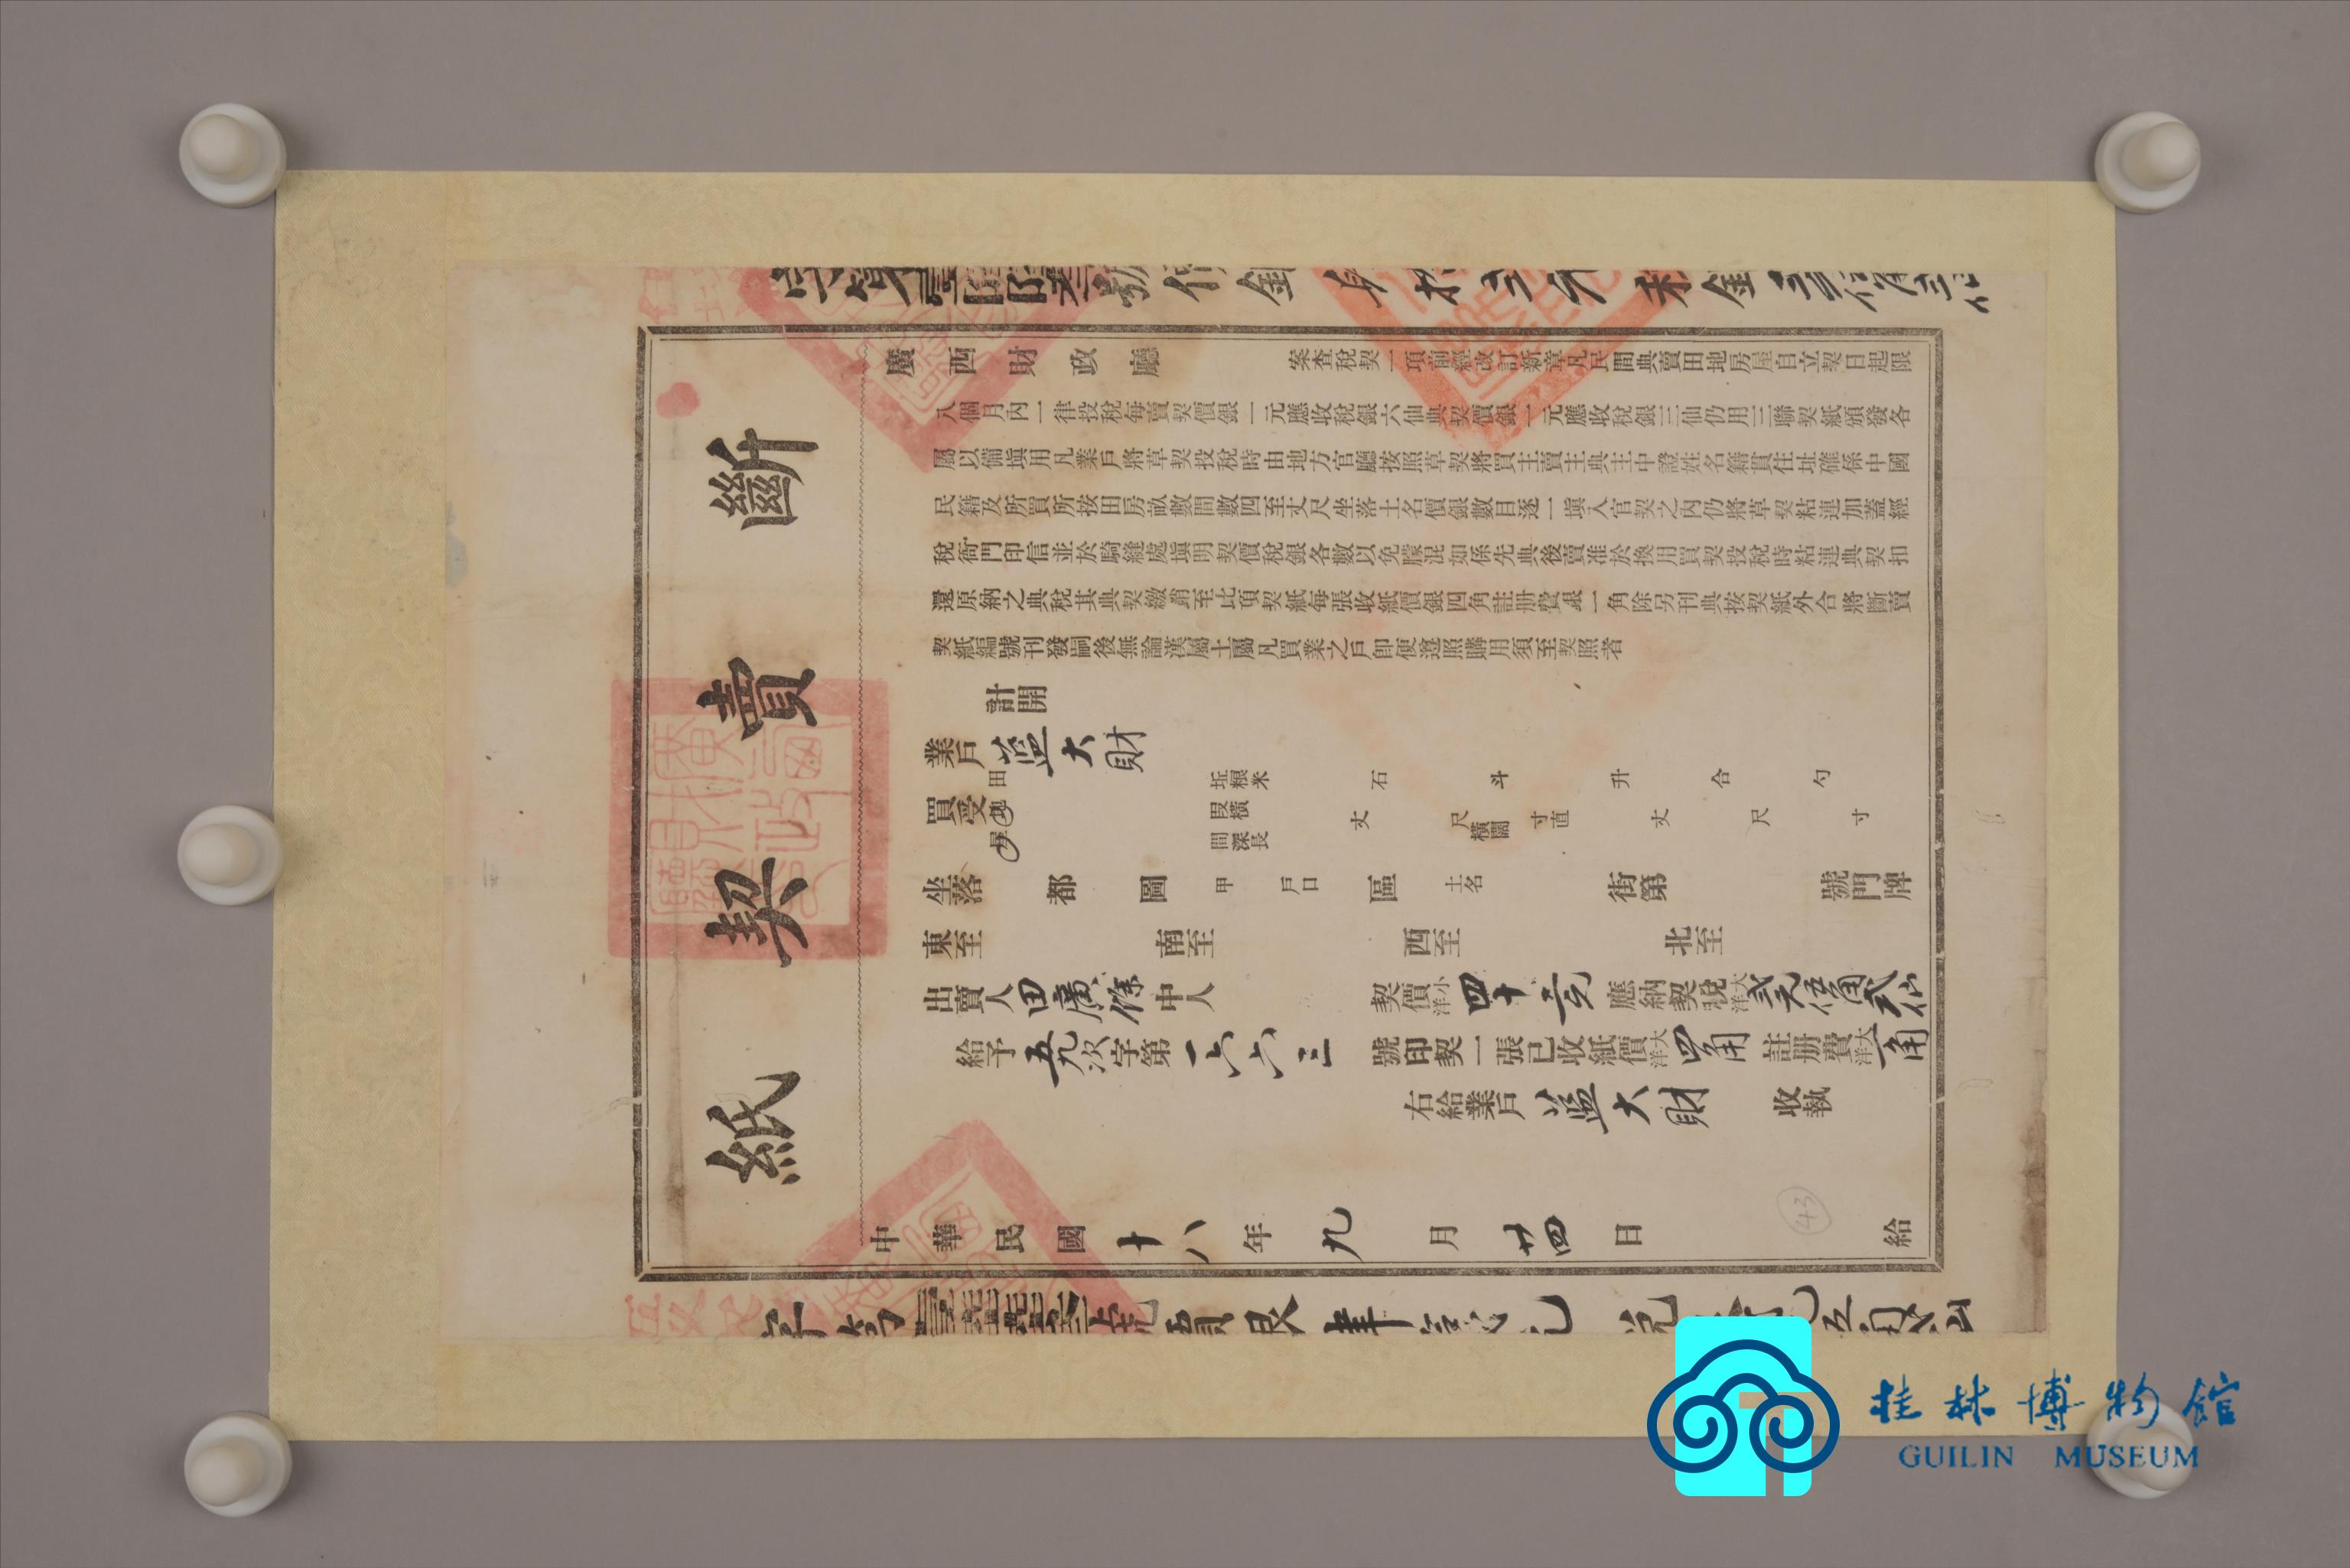 斷賣契紙
廣西財政廳
案查稅契一項前經改訂新章凡民間典賣田地房屋自立契日起限
八個月內一律投稅每賣契價銀一元應收稅銀六仙典契價銀一元應收稅銀三仙仍用三聯契紙頒發各
屬以備填用凡業戶將草契投稅時由地方官廳按照草契將買主賣主典主中證姓名籍貫住址確係中國
民籍及所買所按田房畝數間數四至丈尺坐落土名價銀數目逐一填入官契之內仍將草契粘連加蓋經
稅衙門印信並於騎縫處填明契價稅銀各數以免朦混如係先典後賣准於換用買契投稅時粘連典契扣
還原納之典稅其典契繳銷至此項契紙每張收紙價銀四角註册費銀一角除另刊典按契紙外合將斷賣
契紙編號刊發嗣後無論漢屬土屬凡買業之戶卽便遵照購用須至契照者
計開
業戶藍大財
買受田 坵糧米 石 斗 升 合 勺
段橫 丈 尺 寸直 丈 尺 寸
間深長 橫闊
坐落 都 圖 甲 戶口 區 土名 街第 號門牌
東至 南至 西至 北至
出賣人田廣條 中人 契價小洋四十元 應納契稅大洋弍元伍角弍仙
給予五九次字第一六六三號印契一張已收紙價大洋四角註册費大洋一角
右給業戶藍大財 收執
中華民國十八年九月廿四日給
43
桂林博物館
GUILIN MUSEUM